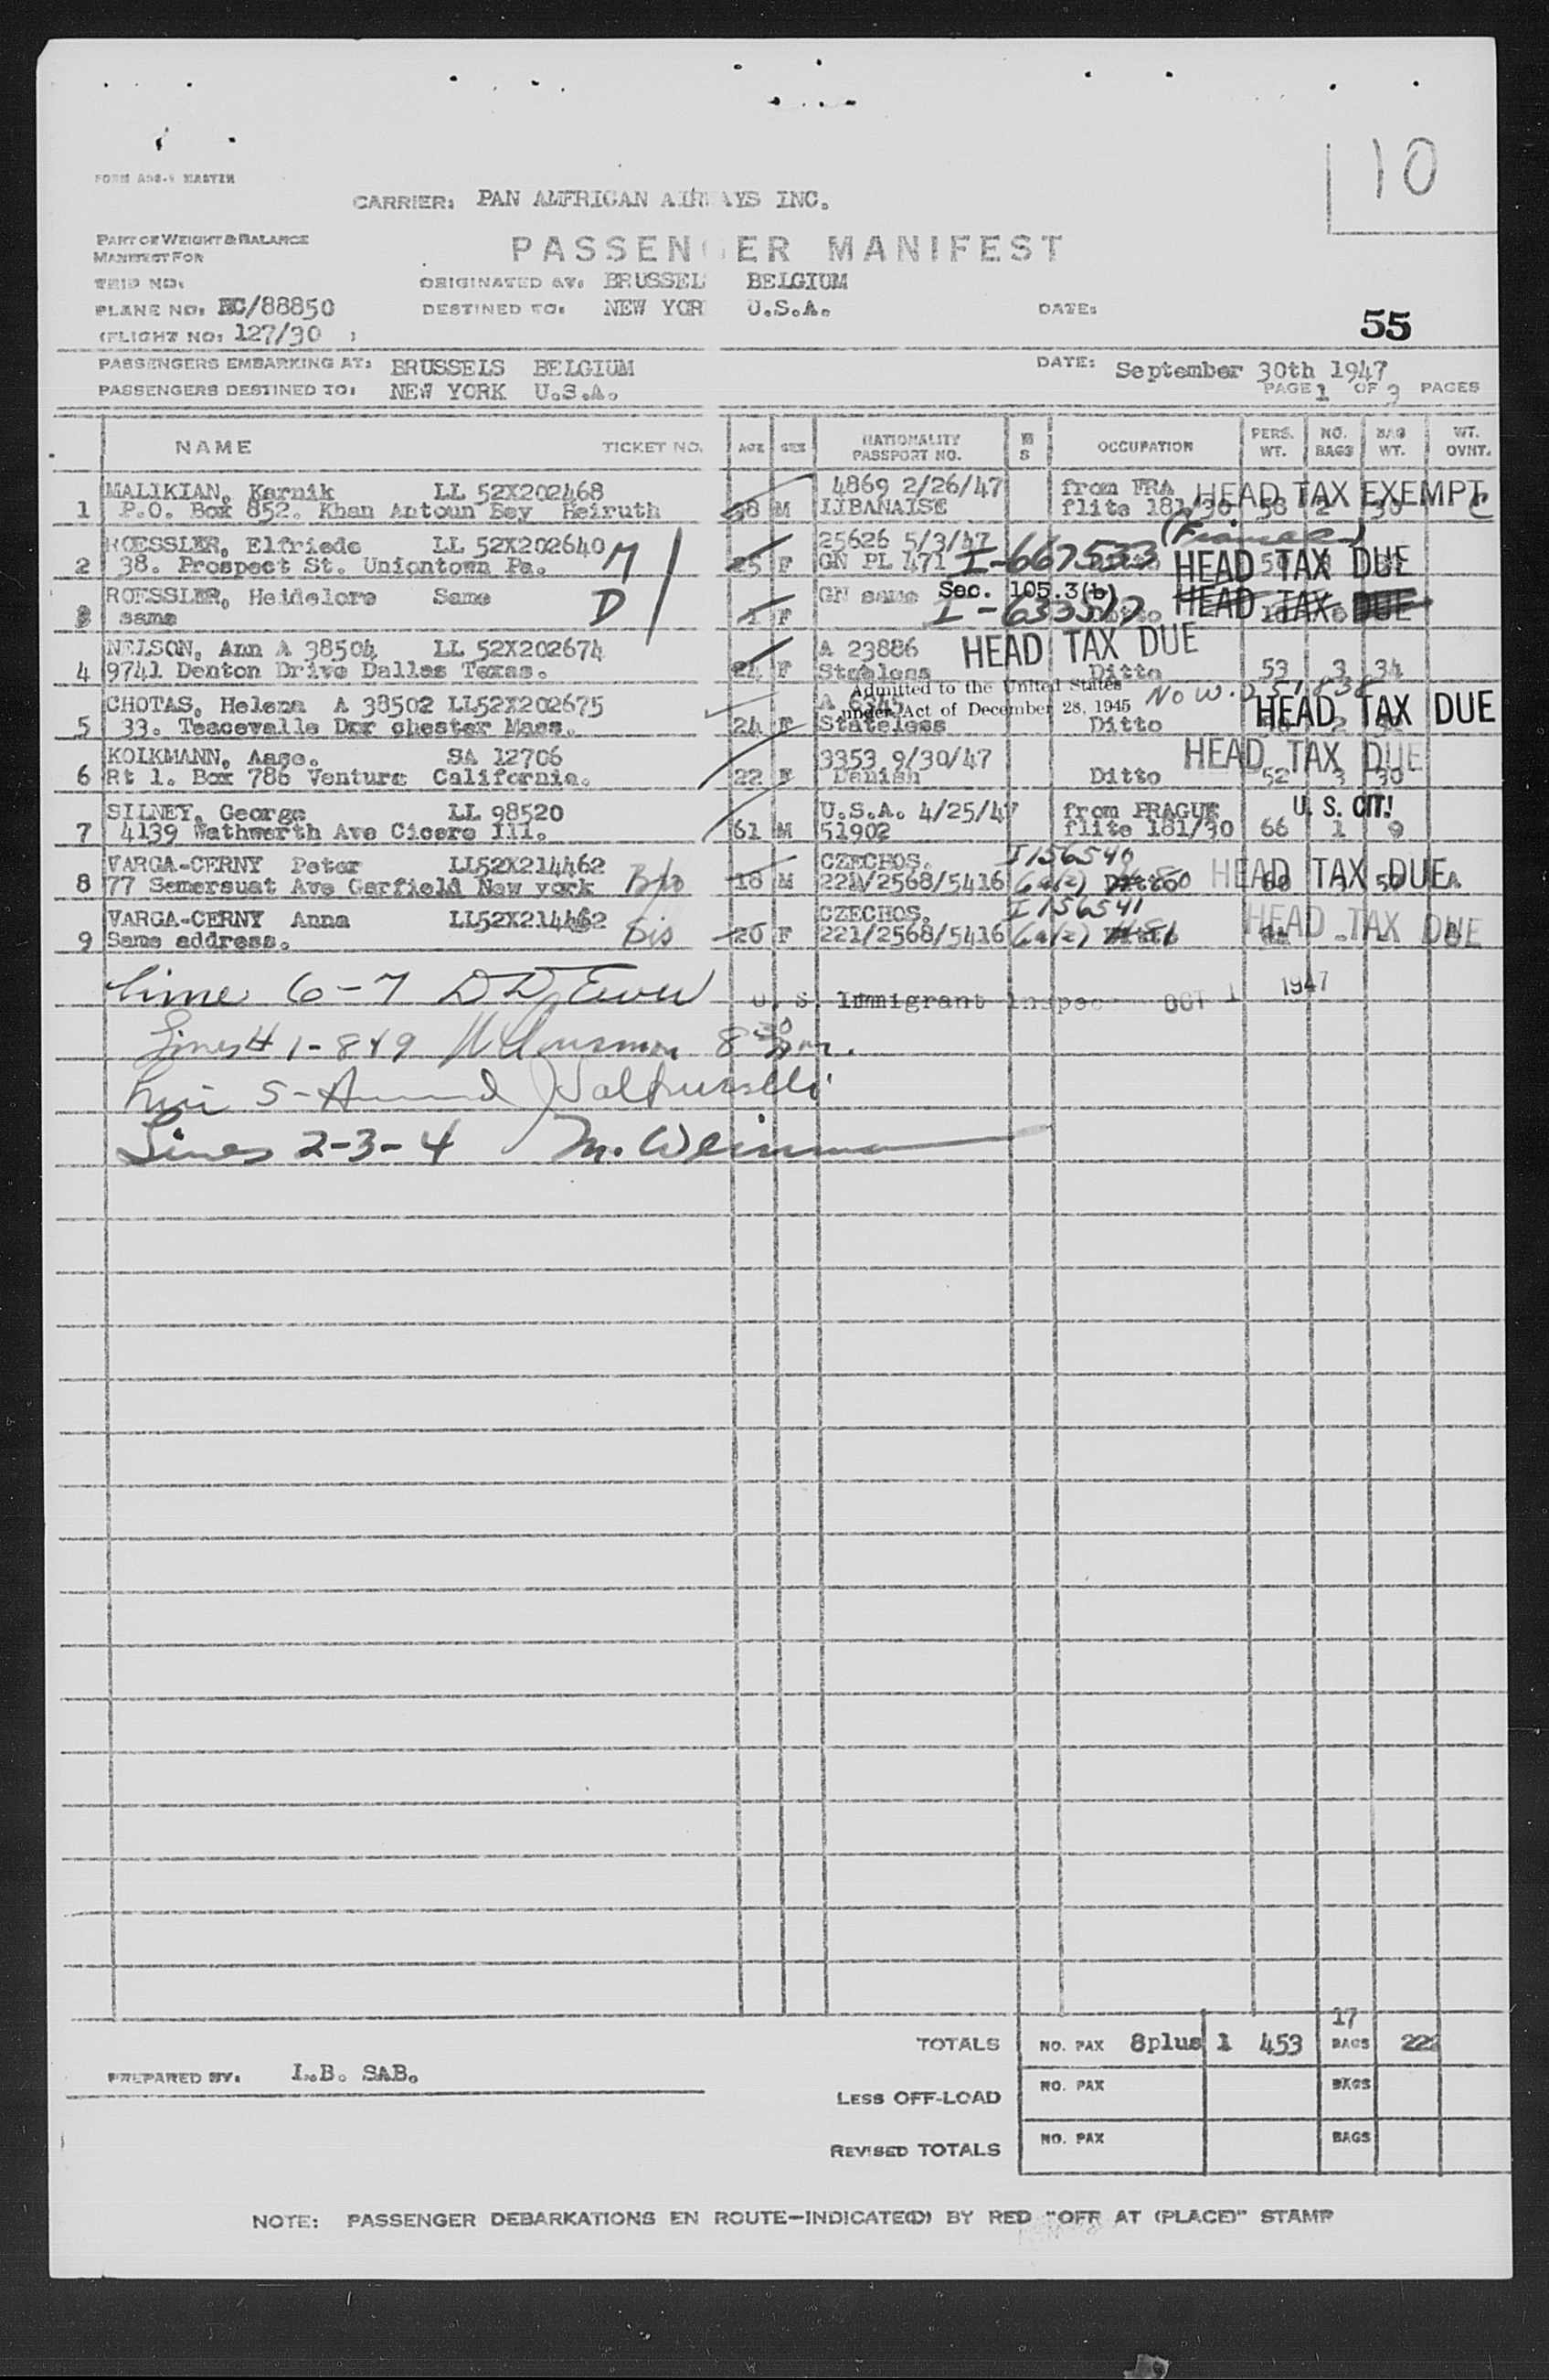 10
FORM ADS-9 MASTER
CARRIER: PAN AMERICAN AIRWAYS INC.
PART OF WEIGHT & BALANCE
MANIFEST FOR
PASSENGER MANIFEST
TRIP NO:
ORIGINATED AT: BRUSSEL BELGIUM
PLANE NO: NC/88850
DESTINED TO: NEW YOR U.S.A.
DATE:
55
(FLIGHT NO: 127/30 )
PASSENGERS EMBARKING AT: BRUSSELS BELGIUM
DATE: September 30th 1947
PASSENGERS DESTINED TO: NEW YORK U.S.A.
PAGE 1 OF 3 PAGES
NAME TICKET NO. AGE SEX NATIONALITY PASSPORT NO. M S OCCUPATION PERS. WT. NO. BAGS BAG WT. WT. OVNT.
MALIKIAN, Karnik LL 52X202468 4869 2/26/47 from FRA HEAD TAX EXEMPT
1 P.O. Box 852. Khan Antoun Bey Beiruth 58 M LIBANAISE flite 181/30 58 2 30 C
ROESSLER, Elfriede LL 52X202640 M 25626 5/3/47
2 38. Prospect St. Uniontown Pa. 25 F GN PL 471 I-667533 HEAD TAX DUE
ROESSLER, Heidelore Same D GN same Sec. 105.3(b)
3 same 1 F Ditto HEAD TAX DUE
NELSON, Ann A 38504 LL 52X202674 A 23886 HEAD TAX DUE
4 9741 Denton Drive Dallas Texas. 24 F Stateless Ditto 53 3 34
Admitted to the United States
CHOTAS, Helena A 38502 LL52X202675 under Act of December 28, 1945
5 33. Teacevalle Dor chester Mass. 24 F Stateless Ditto 2 HEAD TAX DUE
KOLKMANN, Aage. SA 12706 3353 9/30/47 HEAD TAX DUE
6 Rt 1. Box 786 Ventura California. 22 Danish Ditto 52 3 30
SILNEY, George LL 98520 U.S.A. 4/25/47 from PRAGUE U. S. CIT!
7 4139 Wathwerth Ave Cicero Ill. 61 M 51902 flite 181/30 66 1 9
VARGA-CERNY Peter LL52X214462 CZECHOS. I 156540
8 77 Somersuat Ave Garfield New york 18 M 221/2568/5416 HEAD TAX DUE
VARGA-CERNY Anna LL52X214462 CZECHOS. I 156541
9 Same address. 20 F 221/2568/5416 HEAD TAX DUE
Line 6-7
U. S. Immigrant Inspec OCT 1 1947
Lines 1-8 & 9 8 30 pm.
5-
Lines 2-3-4
17
TOTALS NO. PAX 8plus 1 453 BAGS 222
PREPARED BY: I.B. SAB.
LESS OFF-LOAD NO. PAX BAGS
REVISED TOTALS NO. PAX BAGS
NOTE: PASSENGER DEBARKATIONS EN ROUTE-INDICATE(D) BY RED "OFF AT (PLACE)" STAMP